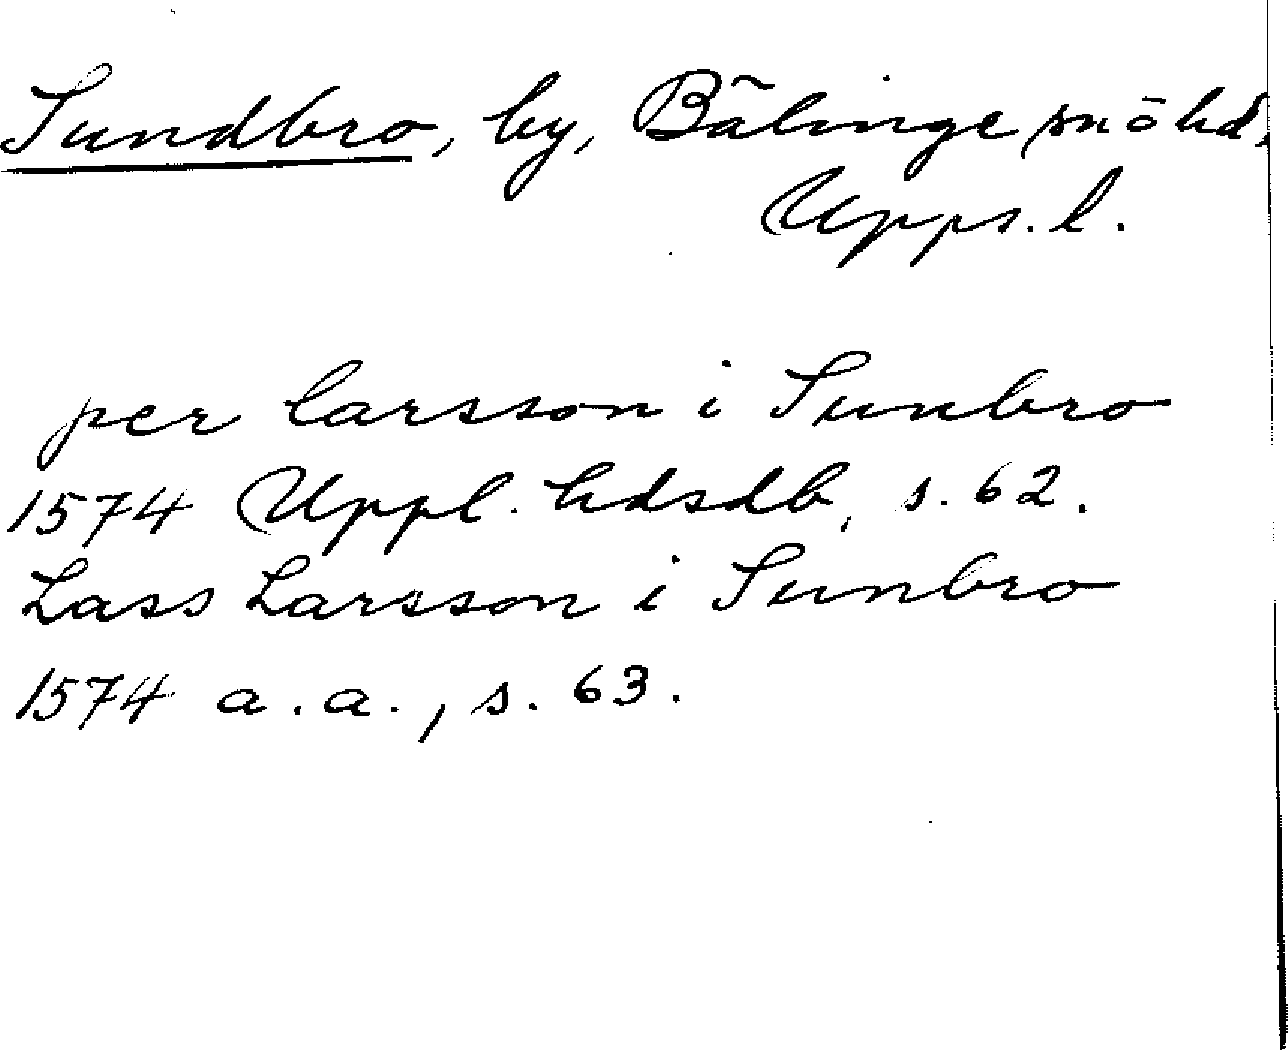 Sundbro, by, Bälinge sn o hd,
Upps. l.
per larsson i Sunbro
1574 Uppl. hdsdb, s. 62.
Lass Larsson i Sunbro
1574 a. a., s. 63.